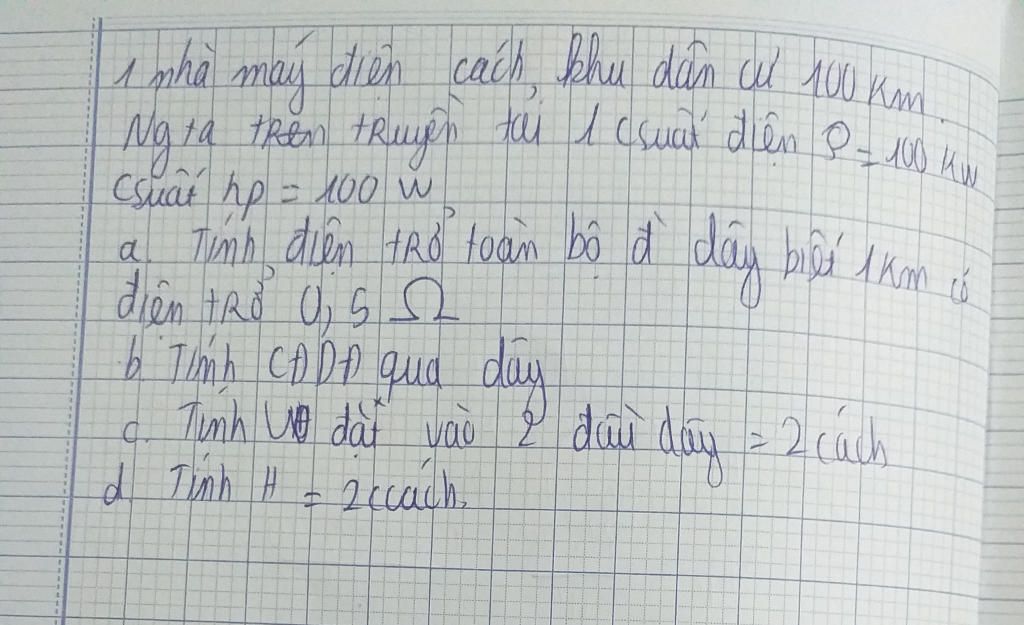 1 nhà máy điện cách khu dân cư 100 Km.
Ng ta tRên tRuyền tải 1 csuất điện P = 100 KW
Csuất hp = 100 W
a. Tính điện tRở toàn bộ đ dây biết 1Km có
điện tRở 0,5 Ω
b Tính CĐDĐ qua dây
c. Tính U đặt vào 2 đầu dây = 2 cách
d. Tính H = 2 ccách.